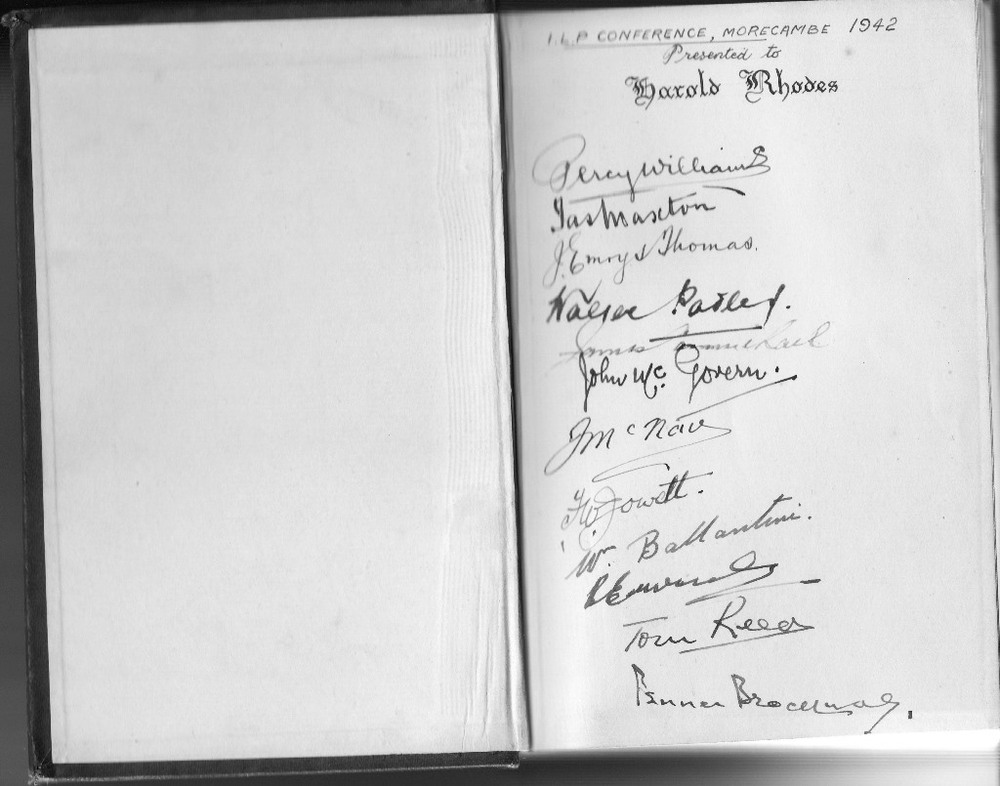 I.L.P CONFERENCE, MORECAMBE 1942
Presented to
Harold Rhodes
Percy Williams
Jas Maxton
J. Emrys Thomas.
Walter Padley.
James Carmichael
John McGovern.
J McNair
F W Jowett.
W. Ballantine.
R Edwards
Tom Reed
Fenner Brockway.